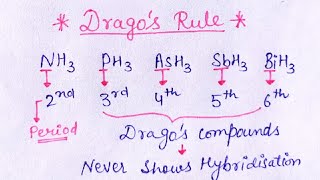 * Drago's Rule *
NH3 PH3 AsH3 SbH3 BiH3
2nd 3rd 4th 5th 6th
Period Drago's compounds
Never Shows Hybridisation